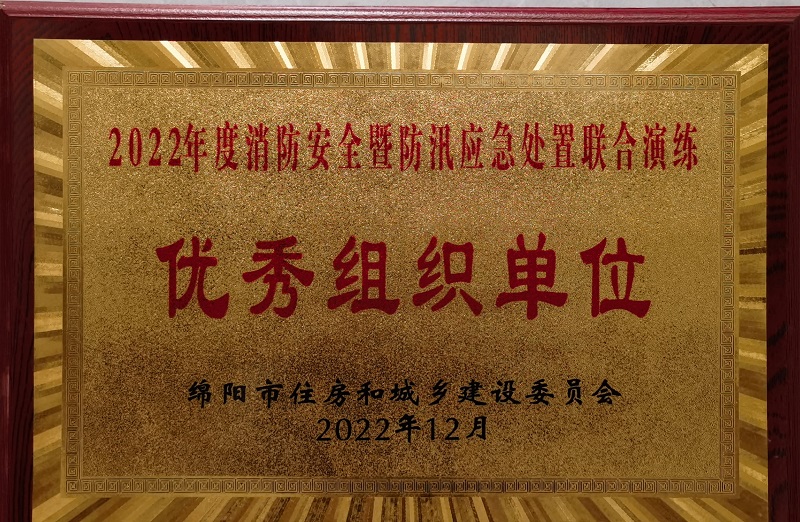 2022年度消防安全暨防汛应急处置联合演练
优秀组织单位
绵阳市住房和城乡建设委员会
2022年12月